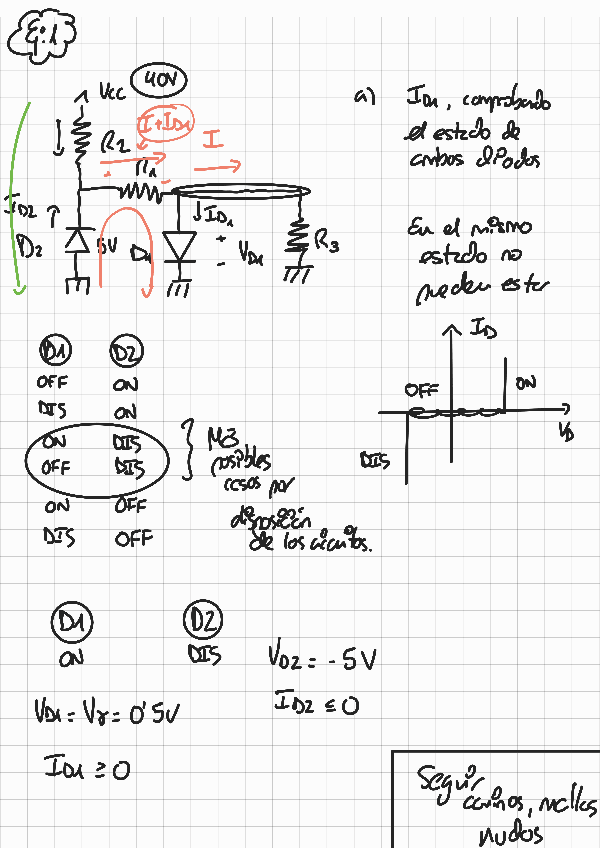 Ej:1
Vcc 40V
R2
I+ID1
I
R1
ID2
D2
5V
D1
ID1
+
VD1
-
R3
a) ID1, comprobando
el estado de
ambos diodos
En el mismo
estado no
pueden estar
ID
OFF
ON
VD
DIS
D1 D2
OFF ON
DIS ON
ON DIS
OFF DIS
ON OFF
DIS OFF
Más
posibles
casos por
disposición
de los circuitos.
D1 D2
ON DIS
VD2 = -5V
ID2 ≤ 0
VD1 = Vγ = 0'5V
ID1 ≥ 0
Seguir
caminos, mallas
nudos